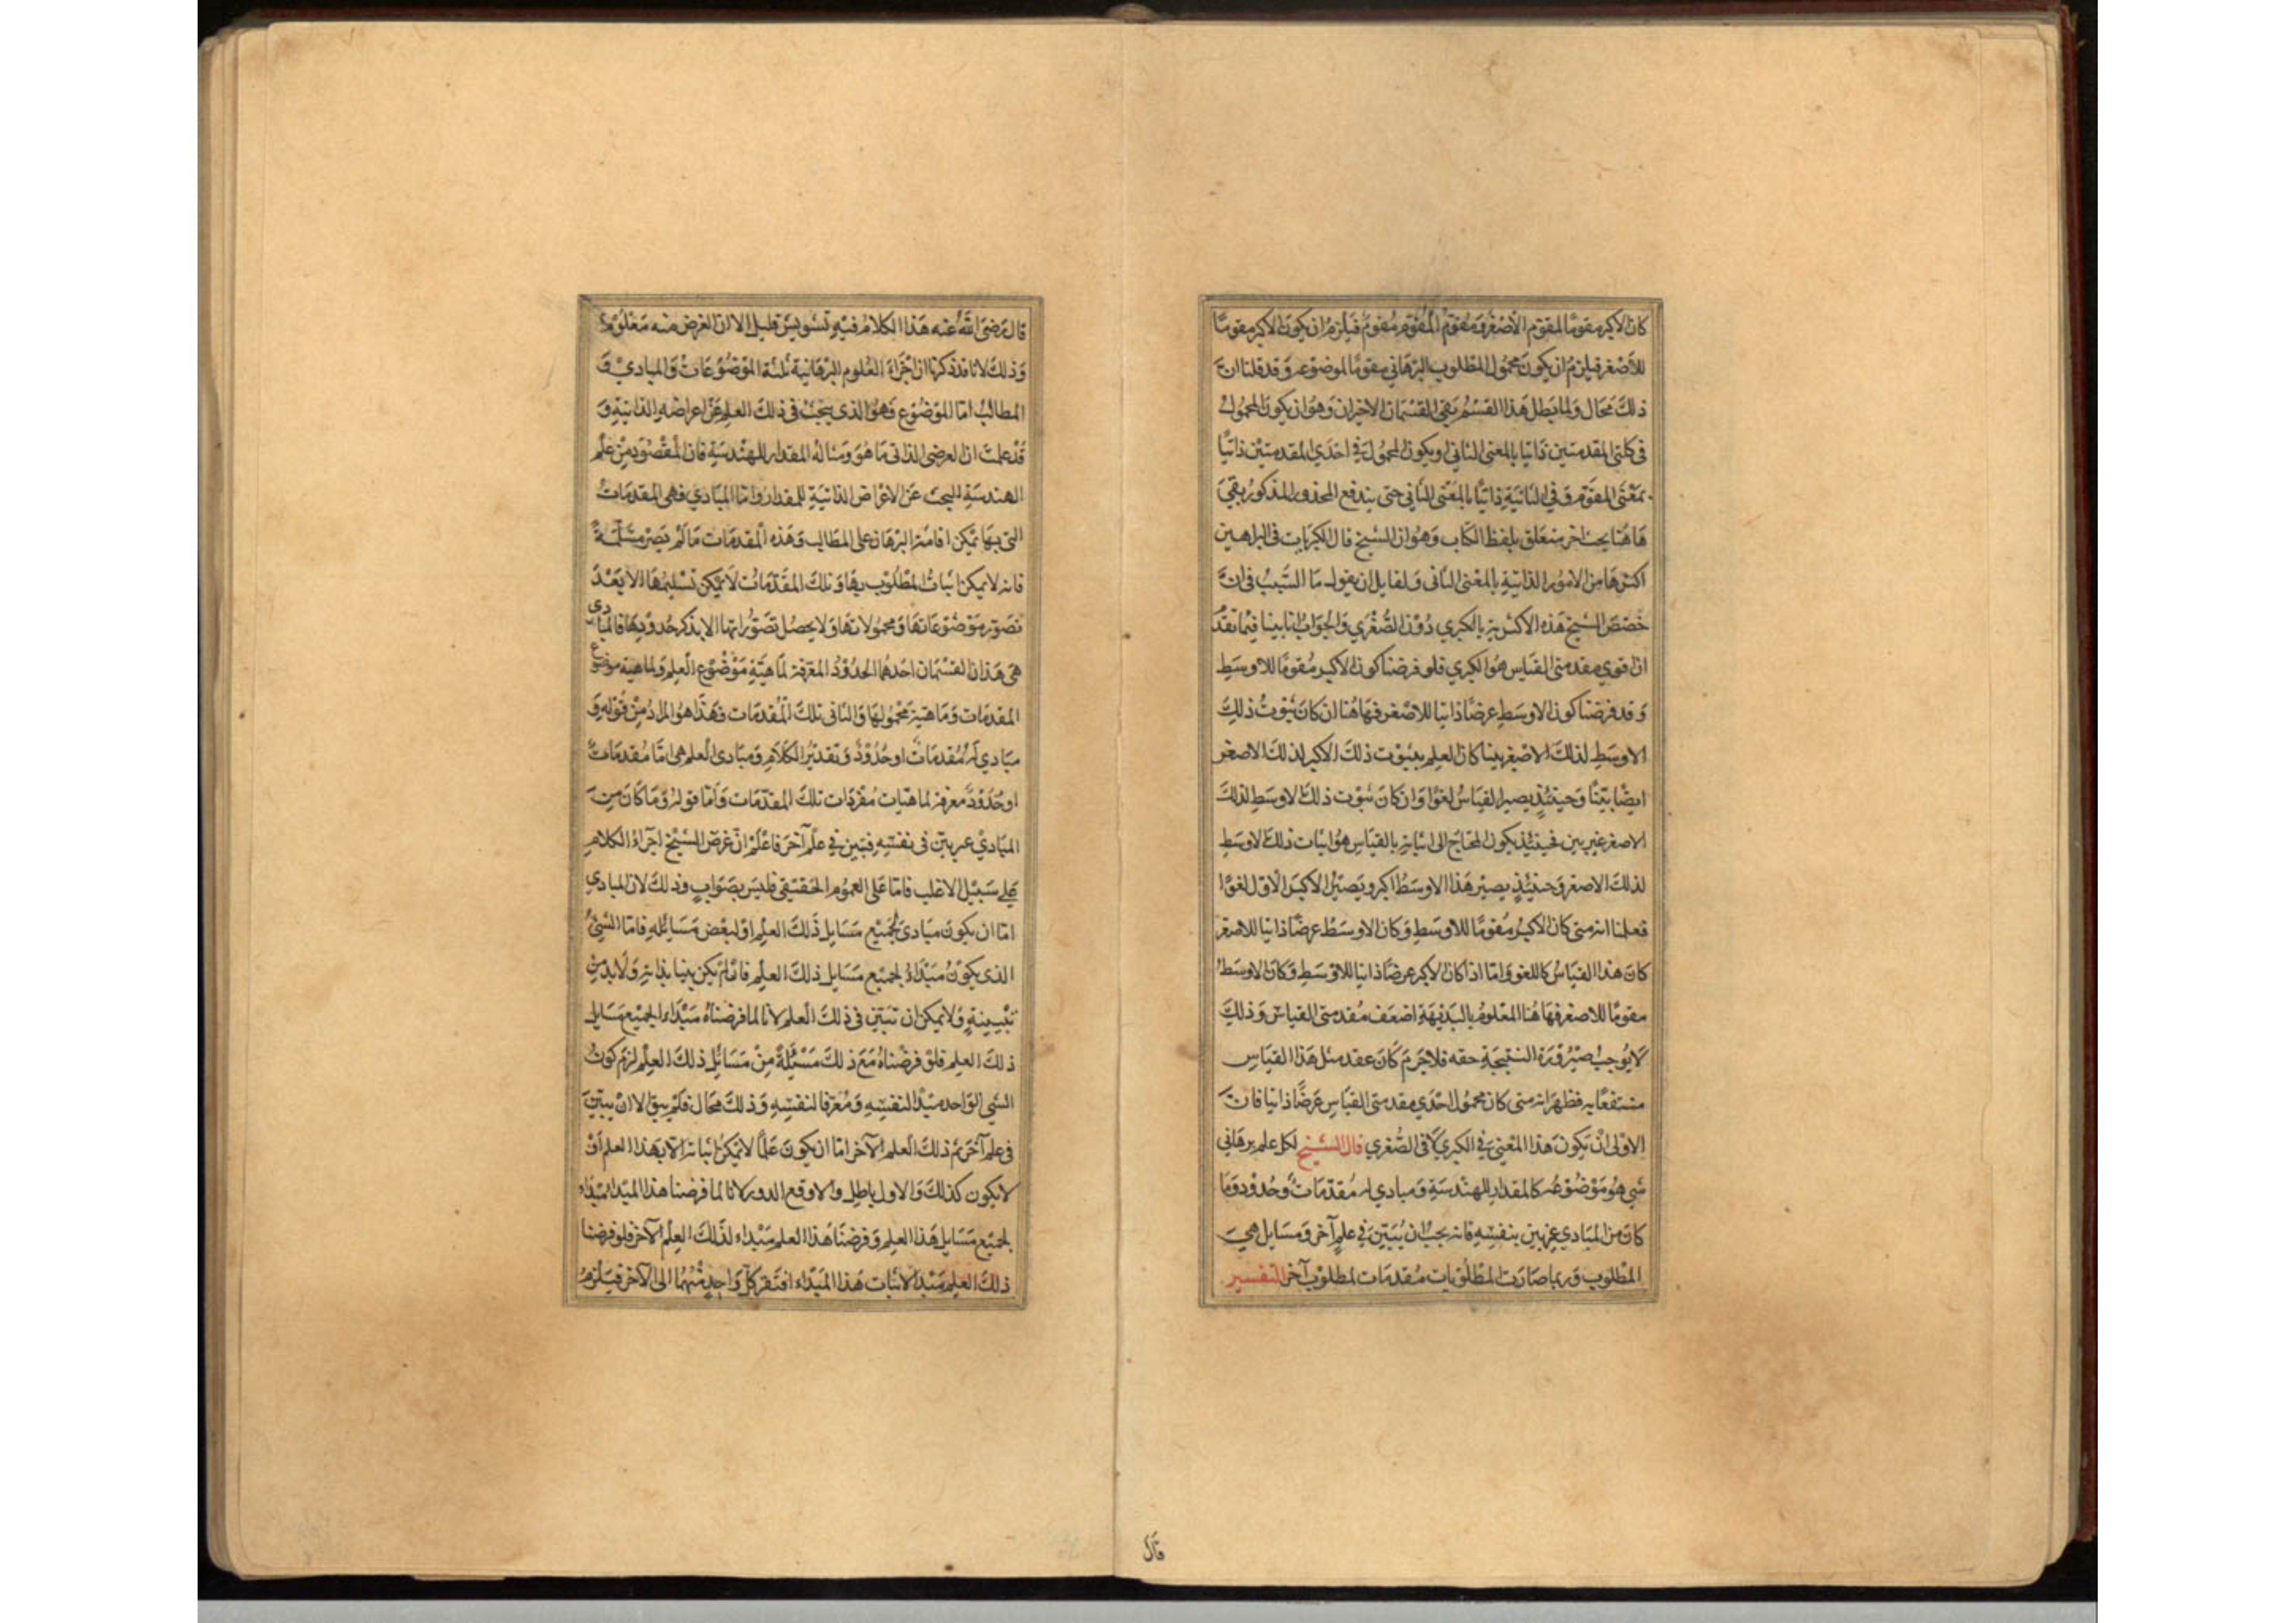 كان الاكبر مقومًا لمقوم الاصغر ومقوم المقوم مقوم فيلزم ان يكون الاكبر مقومًا
للاصغر فيلزم ان يكون محمول المطلوب البرهاني مقومًا لموضوعه وقد قلنا ان
ذلك محال ولما بطل هذا القسم بقى القسمان الاخيران وهو ان يكون المحمول
فى كلتى المقدمتين ذاتيا بالمعنى الثانى او يكون المحمول فى احدى المقدمتين ذاتيًا
بمعنى المقوم وفى الثانية ذاتيًا بالمعنى الثانى حتى يندفع المحذور المذكور بقى
هاهنا بحث اخر متعلق بلفظ الكتاب وهو ان الشيخ قال الكبريات فى البراهين
اكثرها من الامور الذاتية بالمعنى الثانى ولقايل ان يقول ما السبب فى ان
خصص الشيخ هذه الاكثرية بالكبرى دون الصغرى والجواب انا بينا فيما تقدم
ان اقوى مقدمتى القياس هو الكبرى فلو فرضنا كون الاكبر مقومًا للاوسط
وقد فرضنا كون الاوسط عرضًا ذاتيا للاصغر فهاهنا ان كان ثبوت ذلك
الاوسط لذلك الاصغر بينا كان العلم بثبوت ذلك الاكبر لذلك الاصغر
ايضًا بيّنًا وحينئذٍ يصير القياس لغوًا وان كان ثبوت ذلك الاوسط لذلك
الاصغر غير بين فحينئذ يكون المحتاج الى اثباته بالقياس هو اثبات ذلك الاوسط
لذلك الاصغر وحينئذٍ يصير هذا الاوسط اكبر ويصير الاكبر الاول لغوًا
فعلمنا انه متى كان الاكبر مقومًا للاوسط وكان الاوسط عرضًا ذاتيا للاصغر
كان هذا القياس كاللغو واما اذا كان الاكبر عرضًا ذاتيا للاوسط وكان الاوسط
مقومًا للاصغر فهاهنا المعلوم بالبديهة اضعف مقدمتى القياس وذلك
لا يوجب صيرورة النتيجة حقه فلا جرم كان عقد مثل هذا القياس
منتفعًا به فظهر انه متى كان محمول احدى مقدمتى القياس عرضًا ذاتيا فان
الاولى ان يكون هذا المعنى فى الكبرى لا فى الصغرى قال الشيخ لكل علم برهاني
شي هو موضوعه كالمقدار للهندسة ومبادى له مقدمات وحدود وما
كان من المبادى غير بين بنفسه فانه يجب ان يُبيّن فى علمٍ آخر ومسايل هى
المطلوب وربما صارت المطلوبات مقدمات لمطلوب آخر التفسير
قال
قال رضى الله عنه هذا الكلام فيه تشويش قليل الا ان الغرض منه معلوم
وذلك لانا قد ذكرنا ان اجزاء العلوم البرهانية ثلثة الموضوعات والمبادى و
المطالب اما الموضوع فهو الذى يبحث فى ذلك العلم عن اعراضه الذاتية و
قد علمت ان العرضى الذاتى ما هو ومثاله المقدار للهندسة فان المقصود من علم
الهندسة البحث عن الاعراض الذاتية للمقدار واما المبادى فهى المقدمات
التى بها يمكن اقامة البرهان على المطالب وهذه المقدمات ما لم تصر مسلّمةً
فانه لا يمكن اثبات المطلوب بها وتلك المقدّمات لا يمكن تسليمها الا بعد
تصور موضوعاتها ومحمولاتها ولا يحصل تصوراتها الا بذكر حدودها فالمبادى
هى هذان القسمان احدهما الحدود المعرفة لماهية موضوع العلم ولماهية موضوع
المقدمات وماهية محمولها والثانى تلك المقدمات فهذا هو المراد من قوله و
مبادى له مقدمات او حدود وتقدير الكلام ومبادى العلم هى امّا مقدمات
او حدود معرفة لماهيات مفردات تلك المقدّمات وامّا قوله وما كان من
المبادى غير بيّن فى نفسه فيبين فى علم آخر فاعلم ان غرض الشيخ اجراء الكلام
على سبيل الاغلب فامّا على العموم الحقيقى فليس بصواب وذلك لان المبادى
امّا ان يكون مبادى لجميع مسايل ذلك العلم او لبعض مسائله فامّا الشئ
الذى يكون مبداء لجميع مسايل ذلك العلم فان لم يكن بينا بذاته ولا بد من
تبيينه ولا يمكن ان تبيّن فى ذلك العلم لانا لما فرضناه مبداء لجميع مسايل
ذلك العلم فلو فرضناه مع ذلك مسئلة من مسائل ذلك العلم لزم كون
الشى الواحد مبدأ لنفسه ومعرفا لنفسه وذلك محال فلم يبق الا ان يبيّن
فى علم آخر ثم ذلك العلم الآخر امّا ان يكون علمًا لا يمكن اثباته الا بهذا العلم او
لا يكون كذلك والاول باطل والا وقع الدور لانا لما فرضنا هذا المبدا مبداء
لجميع مسايل هذا العلم وفرضنا هذا العلم مبداء لذلك العلم الآخر فلو فرضنا
ذلك العلم مبداء لاثبات هذا المبداء افتقر كل واحد منهما الى الآخر فيلزم